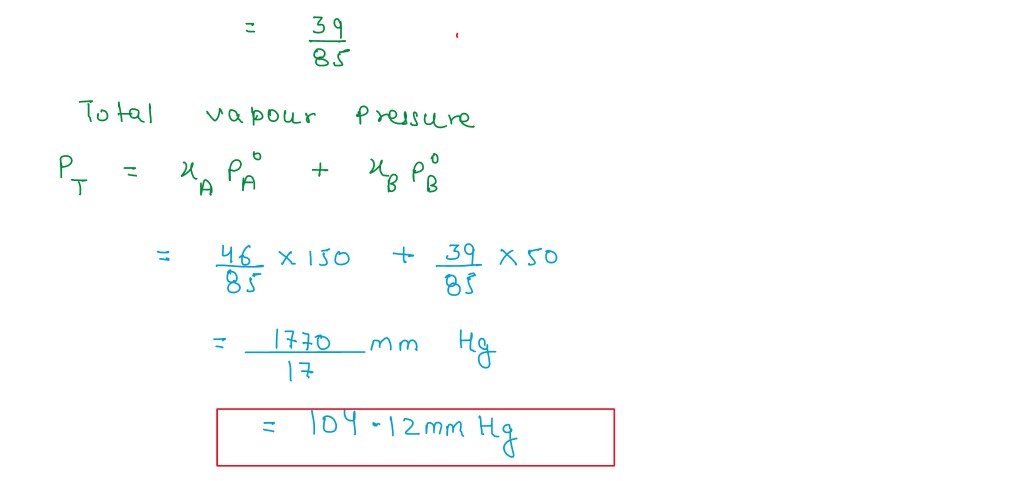 = 39/85
Total vapour pressure
P_T = x_A P_A° + x_B P_B°
= 46/85 × 150 + 39/85 × 50
= 1770/17 mm Hg
= 104.12 mm Hg